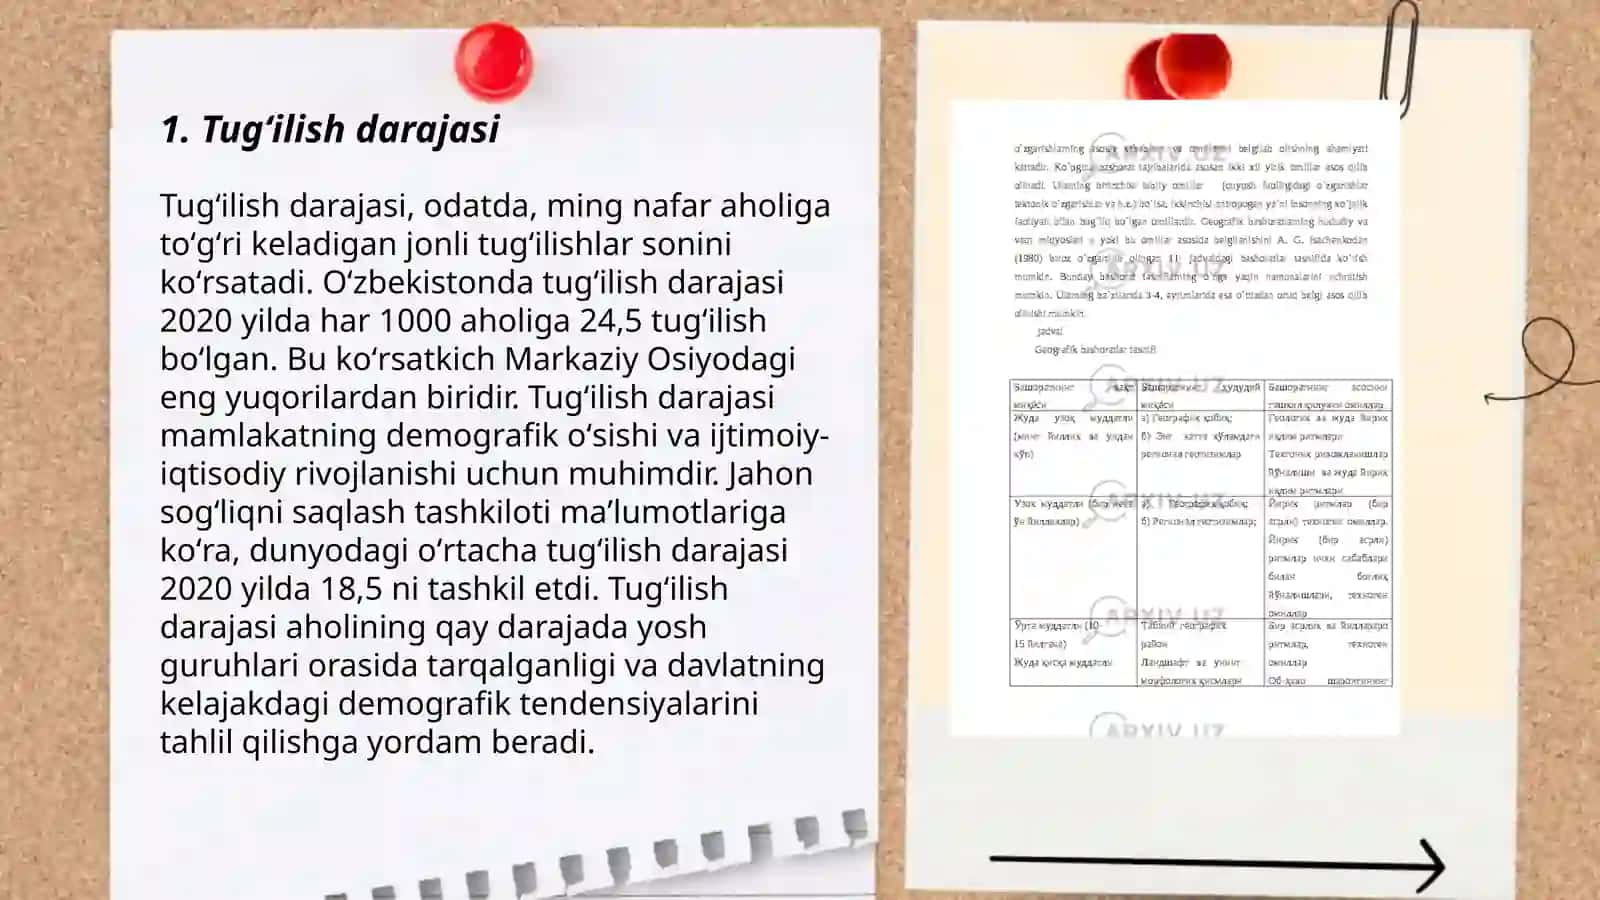 1. Tug‘ilish darajasi
Tug‘ilish darajasi, odatda, ming nafar aholiga
to‘g‘ri keladigan jonli tug‘ilishlar sonini
ko‘rsatadi. O‘zbekistonda tug‘ilish darajasi
2020 yilda har 1000 aholiga 24,5 tug‘ilish
bo‘lgan. Bu ko‘rsatkich Markaziy Osiyodagi
eng yuqorilardan biridir. Tug‘ilish darajasi
mamlakatning demografik o‘sishi va ijtimoiy-
iqtisodiy rivojlanishi uchun muhimdir. Jahon
sog‘liqni saqlash tashkiloti ma’lumotlariga
ko‘ra, dunyodagi o‘rtacha tug‘ilish darajasi
2020 yilda 18,5 ni tashkil etdi. Tug‘ilish
darajasi aholining qay darajada yosh
guruhlari orasida tarqalganligi va davlatning
kelajakdagi demografik tendensiyalarini
tahlil qilishga yordam beradi.
o`zgarishlarning asosiy va belgilab olishning ahamiyati
asosan ikki xil yirik omillar asos qilib
olinadi. Ularning birinchisi tabiiy omillar (quyosh faolligidagi o`zgarishlar
tektonik o`zgarishlar va h.z.) bo`lsa, ikkinchisi antropogen ya`ni insonning xo`jalik
faoliyati bilan bog`liq bo`lgan omillardir. Geografik bashoratlarning hududiy va
vaqt miqyoslari u yoki bu omillar asosida belgilanishini A. G. Isachenkodan
(1980) biroz olingan 11 jadvaldagi bashoratlar tasnifida ko`rish
mumkin. Bunday bashorat tasniflarining o`nga yaqin namunalarini
mumkin. Ularning ba`zilarida 3-4, ayrimlarida esa o`ntadan ortiq belgi asos qilib
olinishi mumkin.
jadval
Geografik bashoratlar tasnifi
Башоратнинг вақт
миқёси
Башоратнинг ҳудудий
миқёси
Башоратнинг асосини
ташкил қилувчи омиллар
Жуда узоқ муддатли
(минг йиллик ва ундан
кўп)
а) Географик қобиқ;
б) Энг катта кўламдаги
регионал геотизимлар
Геологик ва жуда йирик
иқлим ритмлари
Тектоник ривожланишлар
йўналиши ва жуда йирик
иқлим ритмлари
Узоқ муддатли (бир неча
ўн йилликлар)
а) Географик қобиқ;
б) Регионал геотизимлар;
Йирик ритмлар (бир
асрли) техноген омиллар.
Йирик (бир асрли)
ритмлар ички сабаблари
билан боғлиқ
йўналишлари, техноген
омиллар
Ўрта муддатли (10-
15 йилгача)
Жуда қисқа муддатли
Табиий географик
район
Ландшафт ва унинг
морфологик қисмлари
Бир асрлик ва йиллараро
ритмлар, техноген
омиллар
Об-ҳаво шароитининг
ARXIV.UZ
ARXIV.UZ
ARXIV.UZ
ARXIV.UZ
ARXIV.UZ
ARXIV.UZ